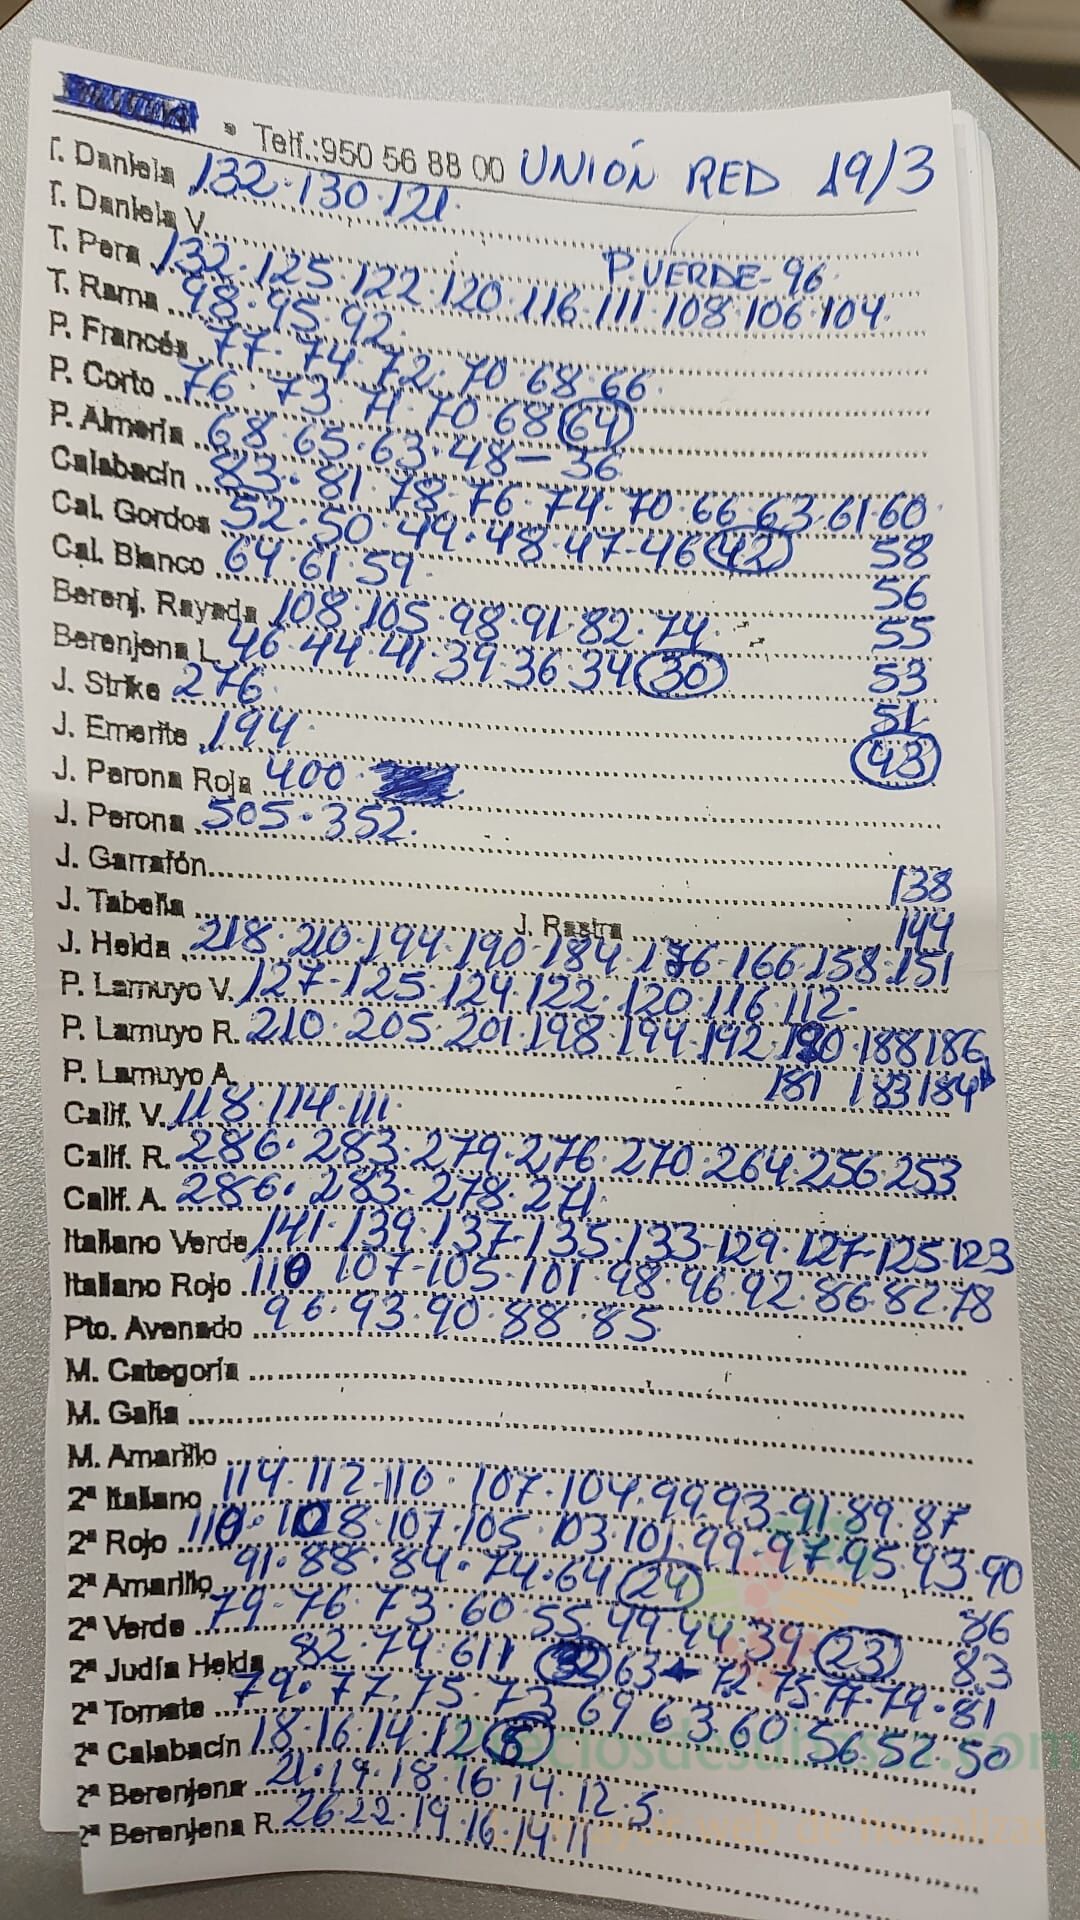 • Telf.:950 56 88 00 UNIÓN RED 19/3
T. Daniela 132·130·121·
T. Daniela V.
P. VERDE-96·
T. Pera 132·125·122·120·116·111·108·106·104·
T. Rama 98·95·92·
P. Francés 77·74·72·70·68·66·
P. Corto 76·73·71·70·68 64
P. Almería 68·65·63·48-36
Calabacín 83·81·78·76·74·70·66·63·61·60·
58
Cal. Gordos 52·50·49·48·47·46 42
56
Cal. Blanco 64·61·59·
55
Berenj. Rayada 108·105·98·91·82·74·
53
Berenjena L. 46·44·41·39·36·34 30
51·
J. Strike 276·
43
J. Emerite 194·
J. Perona Roja 400·
J. Perona 505·352·
J. Garrafón
138
J. Tabella J. Rastra 144
J. Helda 218·210·194·190·184·176·166·158·151
P. Lamuyo V. 127·125·124·122·120·116·112·
P. Lamuyo R. 210·205·201·198·194·192·190·188 186
P. Lamuyo A. 181 183 184
Calif. V. 118·114·111·
Calif. R. 286·283·279·276·270·264·256·253
Calif. A. 286·283·278·271·
Italiano Verde 141·139·137-135·133-129·127-125·123
Italiano Rojo 110 107-105·101·98·96·92·86·82·78
Pto. Avenado 96·93·90·88·85·
M. Categoría
M. Galia
M. Amarillo
2ª Italiano 114·112·110·107·104·99 93·91·89·87
2ª Rojo 110·108·107·105·103·101·99·97·95·93·90
2ª Amarillo 91·88·84·74·64 24
86
2ª Verde 79·76·73·60·55·49·44·39 23
83
2ª Judía Helda 82·74·61 32 63 72·75·77·79·81
2ª Tomate 79·77·75·73 69 63·60 56·52·50
2ª Calabacín 18·16·14·12 8
2ª Berenjena 21·19·18·16·14·12·5·
2ª Berenjena R. 26·22·19·16·14·11
Preciosdesubasta.com
La mayor web de hortalizas